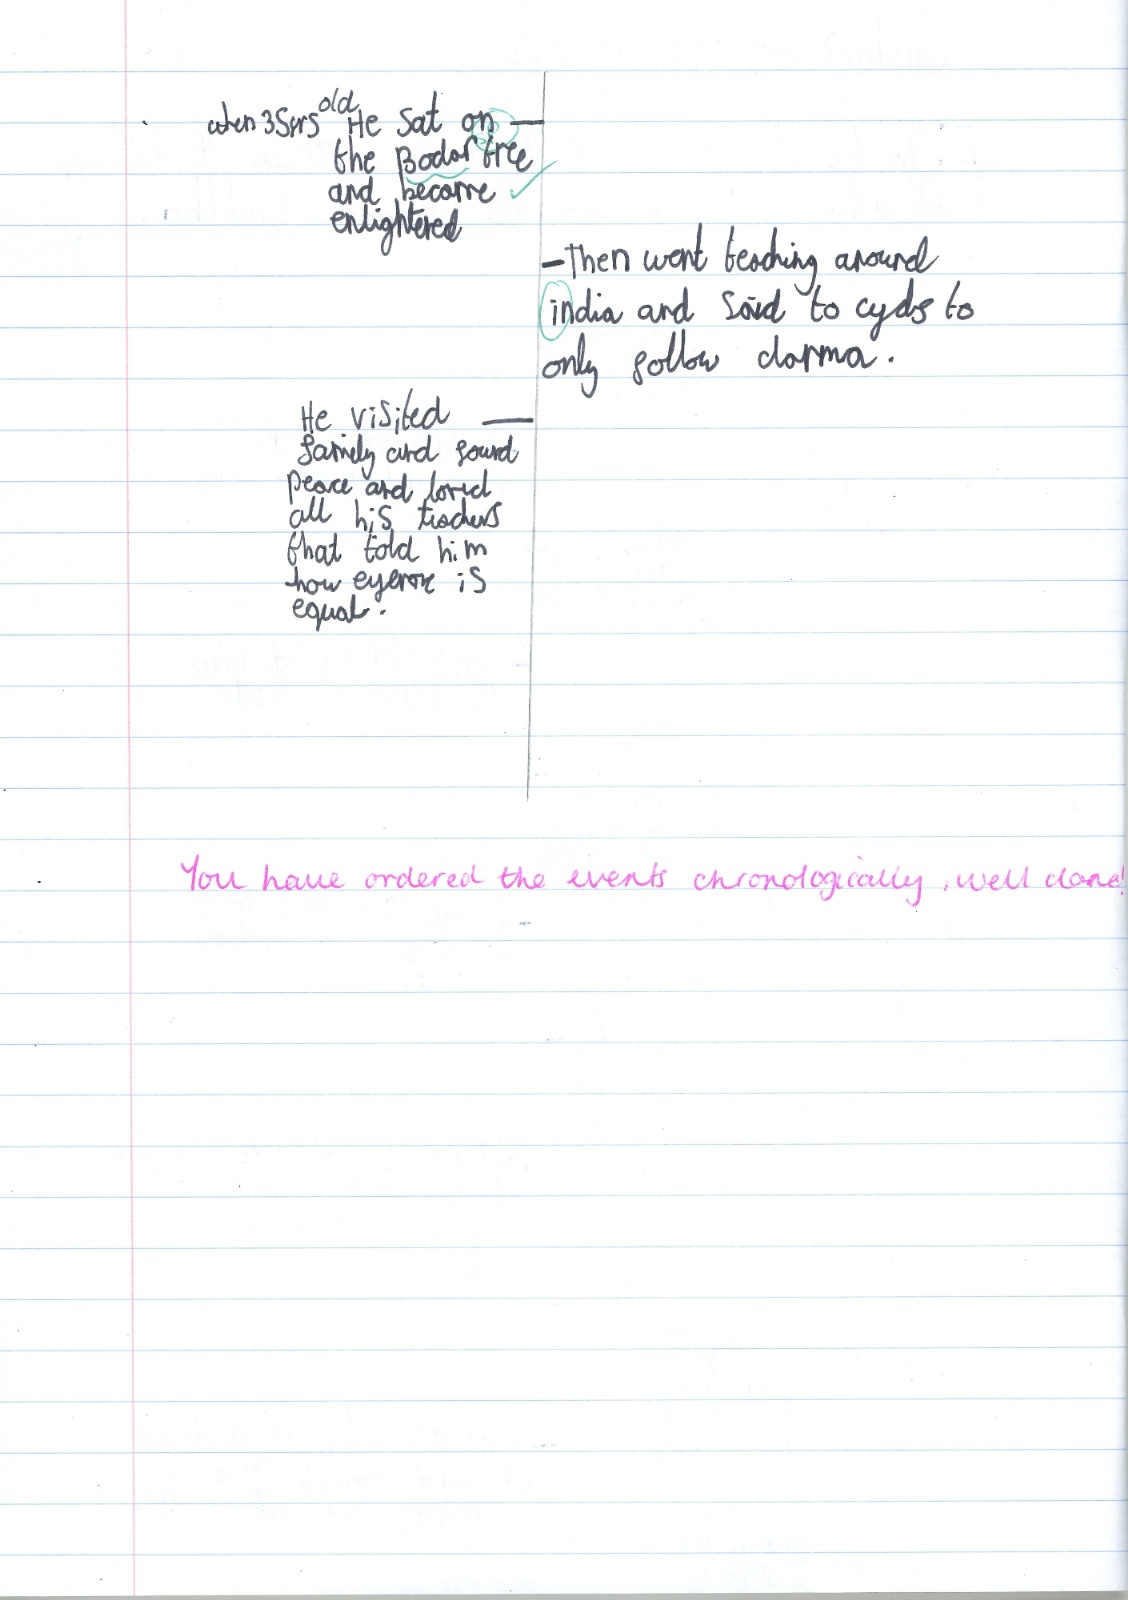 old
when 35yrs He sat on
the Bodar tree
and become
enlightered
Then went teaching around
india and said to to
only follow darma.
He visited
family and found
peace and loved
all his teachers
that told him
how is
equal.
You have ordered the events chronologically, well done!